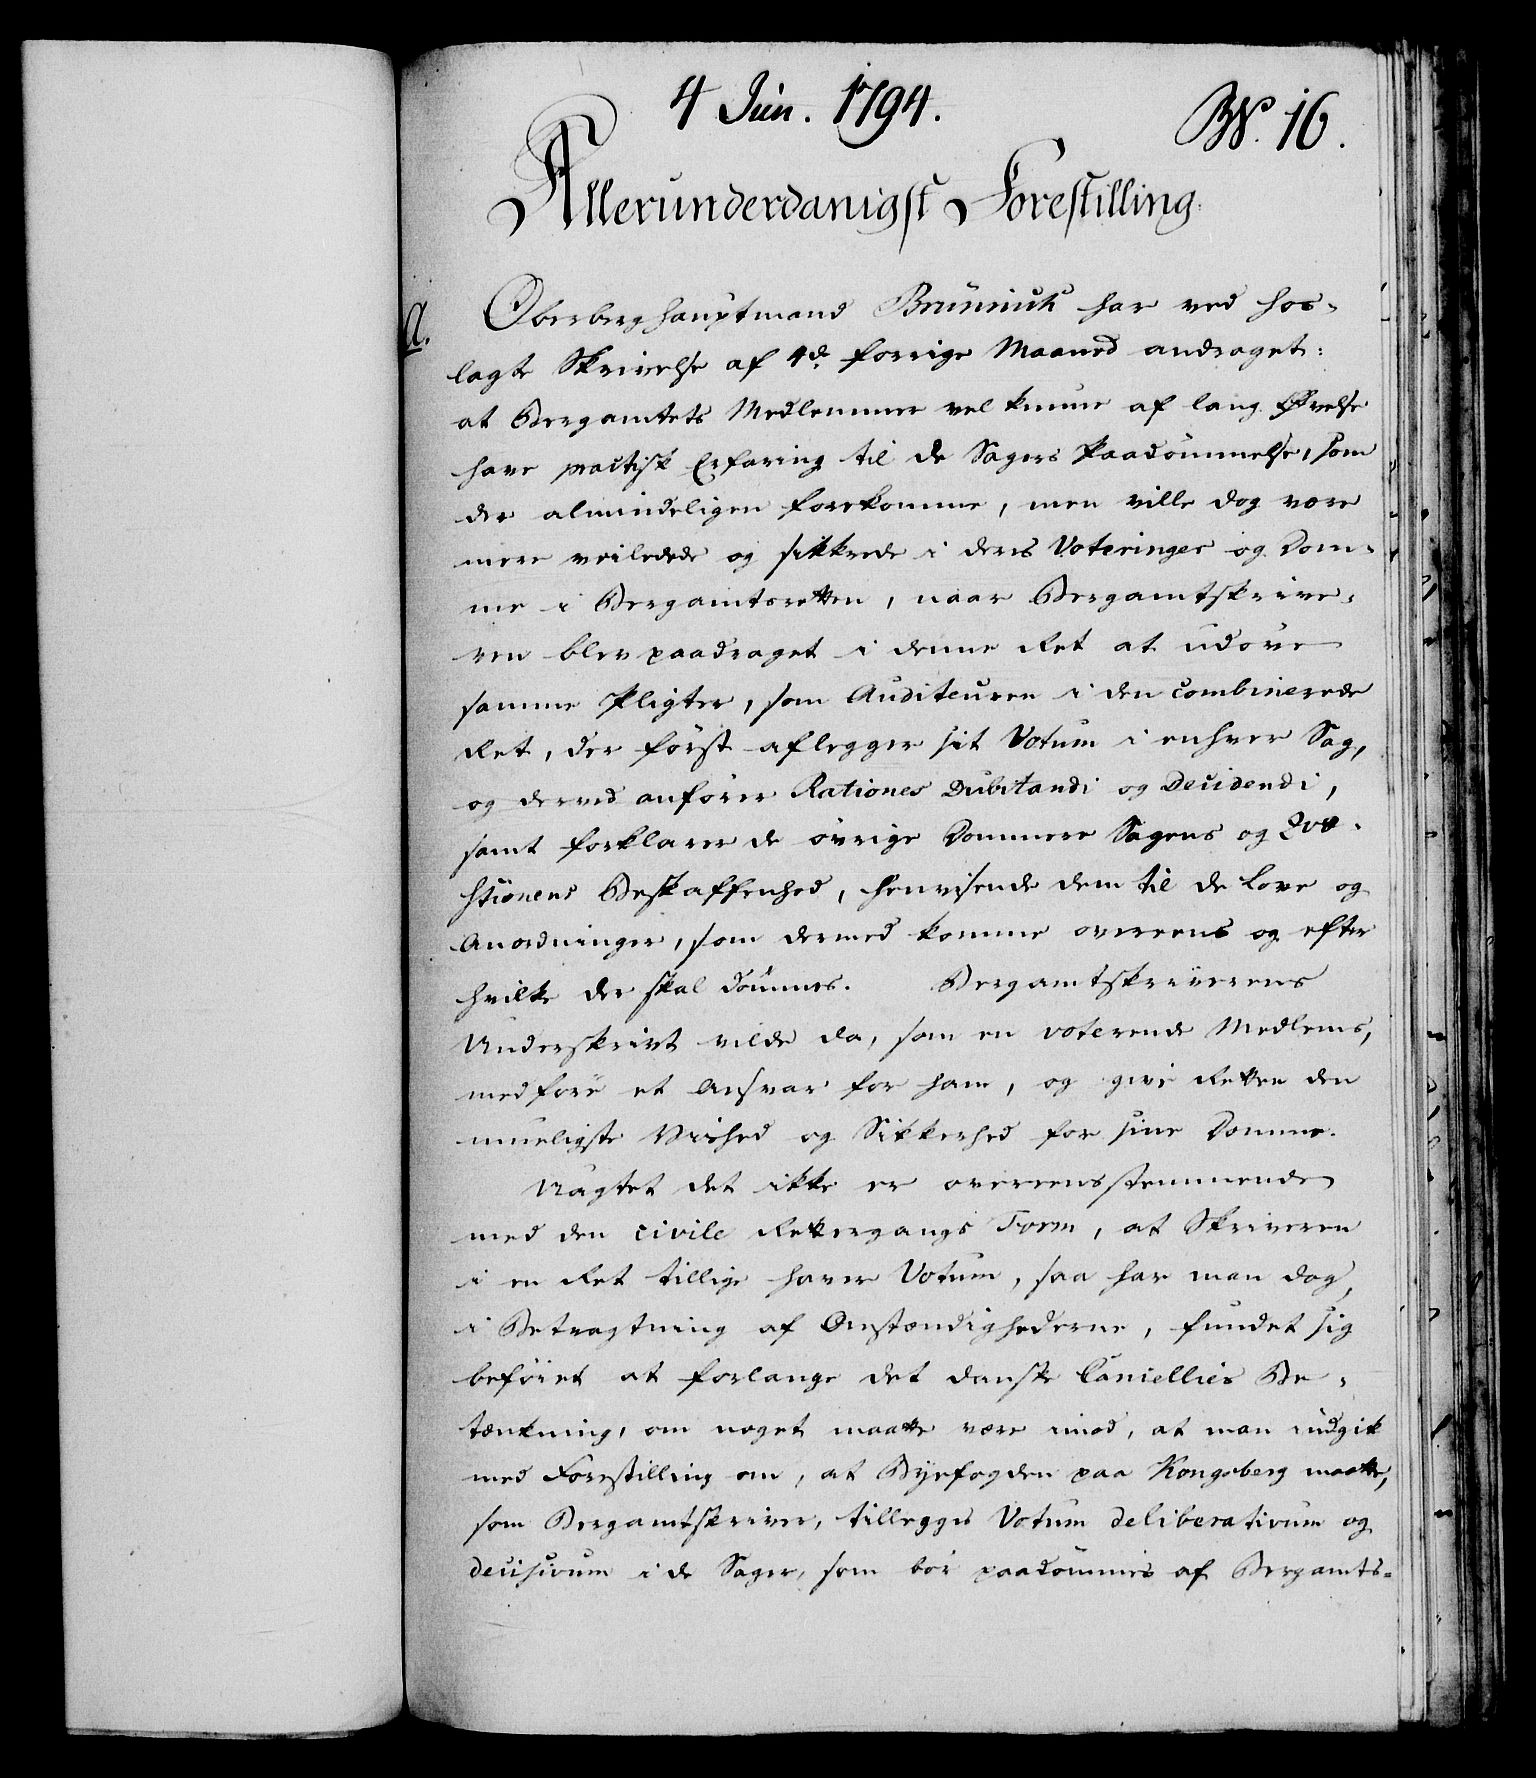 4 Jun. 1794.
No. 16.
Allerunderdanigst Forestilling.
A.
Oberberghauptmand Brünnich har ved hos-
lagte Skrivelse af 4de forrige Maaned andraget:
at Bergamtets Medlemmer vel kunne af lang Øvelse
have practisk Erfaring til de Sagers Paadømmelse, som
der almindeligen forekomme, men ville dog være
mere veiledede og sikkrede i deres Voteringer og Dom-
me i Bergamtsretten, naar Bergamtskrive-
ren blev paadraget i denne Ret at udøve
samme Pligter, som Auditeuren i den combinerede
Ret, der først aflegger sit Votum i enhver Sag,
og derved anfører Rationes Dubitandi og Decidendi,
samt forklarer de øvrige Dommere Sagens og Qvæ-
stionens Beskaffenhed, henvisende dem til de Love og
Anordninger, som dermed komme overeens og efter
hvilke der skal dømmes. Bergamtskriverens
Underskrivt vilde da, som en voterende Medlems,
medføre et Ansvar for ham, og give Retten den
mueligste Vished og Sikkerhed for sine Domme.
Uagtet det ikke er overeensstemmende
med den civile Rettergangs Form, at Skriveren
i en Ret tillige haver Votum, saa har man dog,
i Betragtning af Omstændighederne, fundet sig
beføiet at forlange det danske Cancellies Be-
tænkning, om noget maatte være imod, at man indgik
med Forestilling om, at Byefogden paa Kongsberg maatte,
som Bergamtskriver, tillegges Votum deliberativum og
decisivum i de Sager, som bør paadømmes af Bergamts-